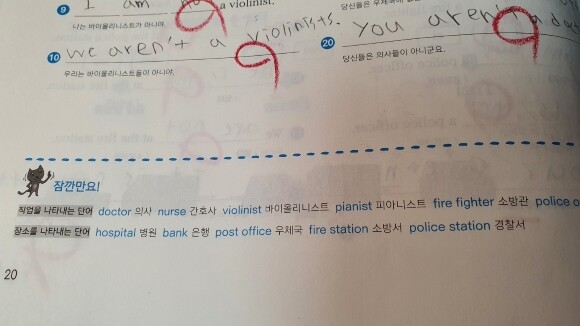 9 I am no a violinist.
나는 바이올리니스트가 아니야.
10 we aren't a violinists.
우리는 바이올리니스트들이 아니야.
20 You aren't a
당신들은 의사들이 아니군요.
잠깐만요!
직업을 나타내는 단어 doctor 의사 nurse 간호사 violinist 바이올리니스트 pianist 피아니스트 fire fighter 소방관 police o
장소를 나타내는 단어 hospital 병원 bank 은행 post office 우체국 fire station 소방서 police station 경찰서
20